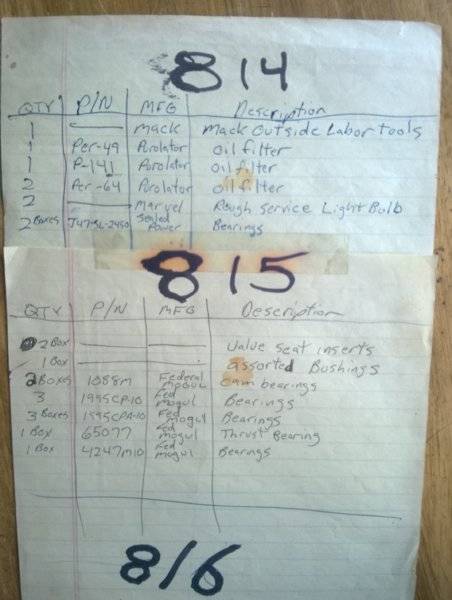 814
QTY P/N MFG Description
1 — Mack Mack Outside Labor Tools
1 Per-49 Purolator oil filter
1 P-141 Purolator oil filter
2 Per-64 Purolator oil filter
2 — Marvel Rough Service Light Bulb
2 Boxes Sealed Power Bearings
815
QTY P/N MFG Description
2 Box — — Valve seat inserts
1 Box — — assorted Bushings
2 Boxes 1088M Federal Mogul Cam bearings
3 1995CP-10 Fed Mogul Bearings
3 Boxes Fed Mogul Bearings
1 Box 65077 Fed Mogul Thrust Bearing
1 Box 4247M10 Fed Mogul Bearings
816